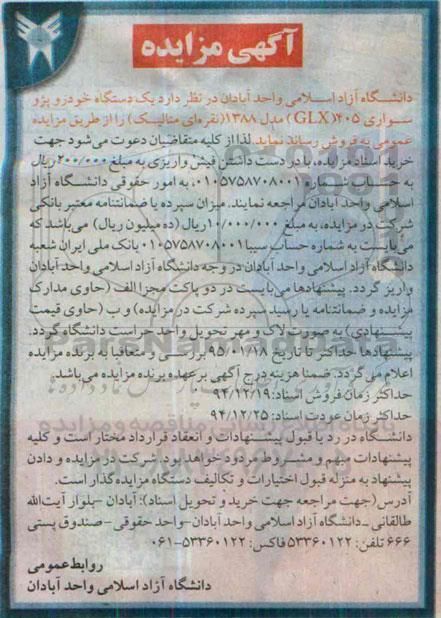 آگهی مزایده
دانشگاه آزاد اسلامی واحد آبادان در نظر دارد یک دستگاه خودرو پژو
سواری ۴۰۵(GLX) مدل ۱۳۸۸(نقره‌ای متالیک) را از طریق مزایده
عمومی به فروش رساند نماید. لذا از کلیه متقاضیان دعوت می‌شود جهت
خرید اسناد مزایده، با در دست داشتن فیش واریزی به مبلغ ۲۰۰/۰۰۰ ریال
به حساب شماره ۰۱۰۵۷۵۸۷۰۸۰۰۱، به امور حقوقی دانشگاه آزاد
اسلامی واحد آبادان مراجعه نمایند. میزان سپرده یا ضمانتنامه معتبر بانکی
شرکت در مزایده، به مبلغ ۱۰/۰۰۰/۰۰۰ ریال (ده میلیون ریال) می‌باشد که
می‌بایست به شماره حساب سیبا ۰۱۰۵۷۵۸۷۰۸۰۰۱ بانک ملی ایران شعبه
دانشگاه آزاد اسلامی واحد آبادان در وجه دانشگاه آزاد اسلامی واحد آبادان
واریز گردد. پیشنهادها می‌بایست در دو پاکت مجزا الف (حاوی مدارک
مزایده و ضمانتنامه یا رسید سپرده شرکت در مزایده) و ب (حاوی قیمت
پیشنهادی) به صورت لاک و مهر تحویل واحد حراست دانشگاه گردد.
پیشنهادها حداکثر تا تاریخ ۹۵/۰۱/۱۸ بررسی و متعاقبا به برنده مزایده
اعلام می‌گردد. ضمنا هزینه درج آگهی بر عهده برنده مزایده می‌باشد.
حداکثر زمان فروش اسناد: ۹۴/۱۲/۱۹
حداکثر زمان عودت اسناد: ۹۴/۱۲/۲۵
دانشگاه در رد یا قبول پیشنهادات و انعقاد قرارداد مختار است و کلیه
پیشنهادات مبهم و مشروط مردود خواهد بود. شرکت در مزایده و دادن
پیشنهاد به منزله قبول اختیارات و تکالیف دستگاه مزایده گذار است.
آدرس(جهت مراجعه جهت خرید و تحویل اسناد): آبادان -بلوار آیت‌الله
طالقانی -دانشگاه آزاد اسلامی واحد آبادان-واحد حقوقی -صندوق پستی
۶۶۶ تلفن: ۵۳۳۶۰۱۲۲ فاکس: ۵۳۳۶۰۱۲۲-۰۶۱
روابط عمومی
دانشگاه آزاد اسلامی واحد آبادان
ParsNamadData